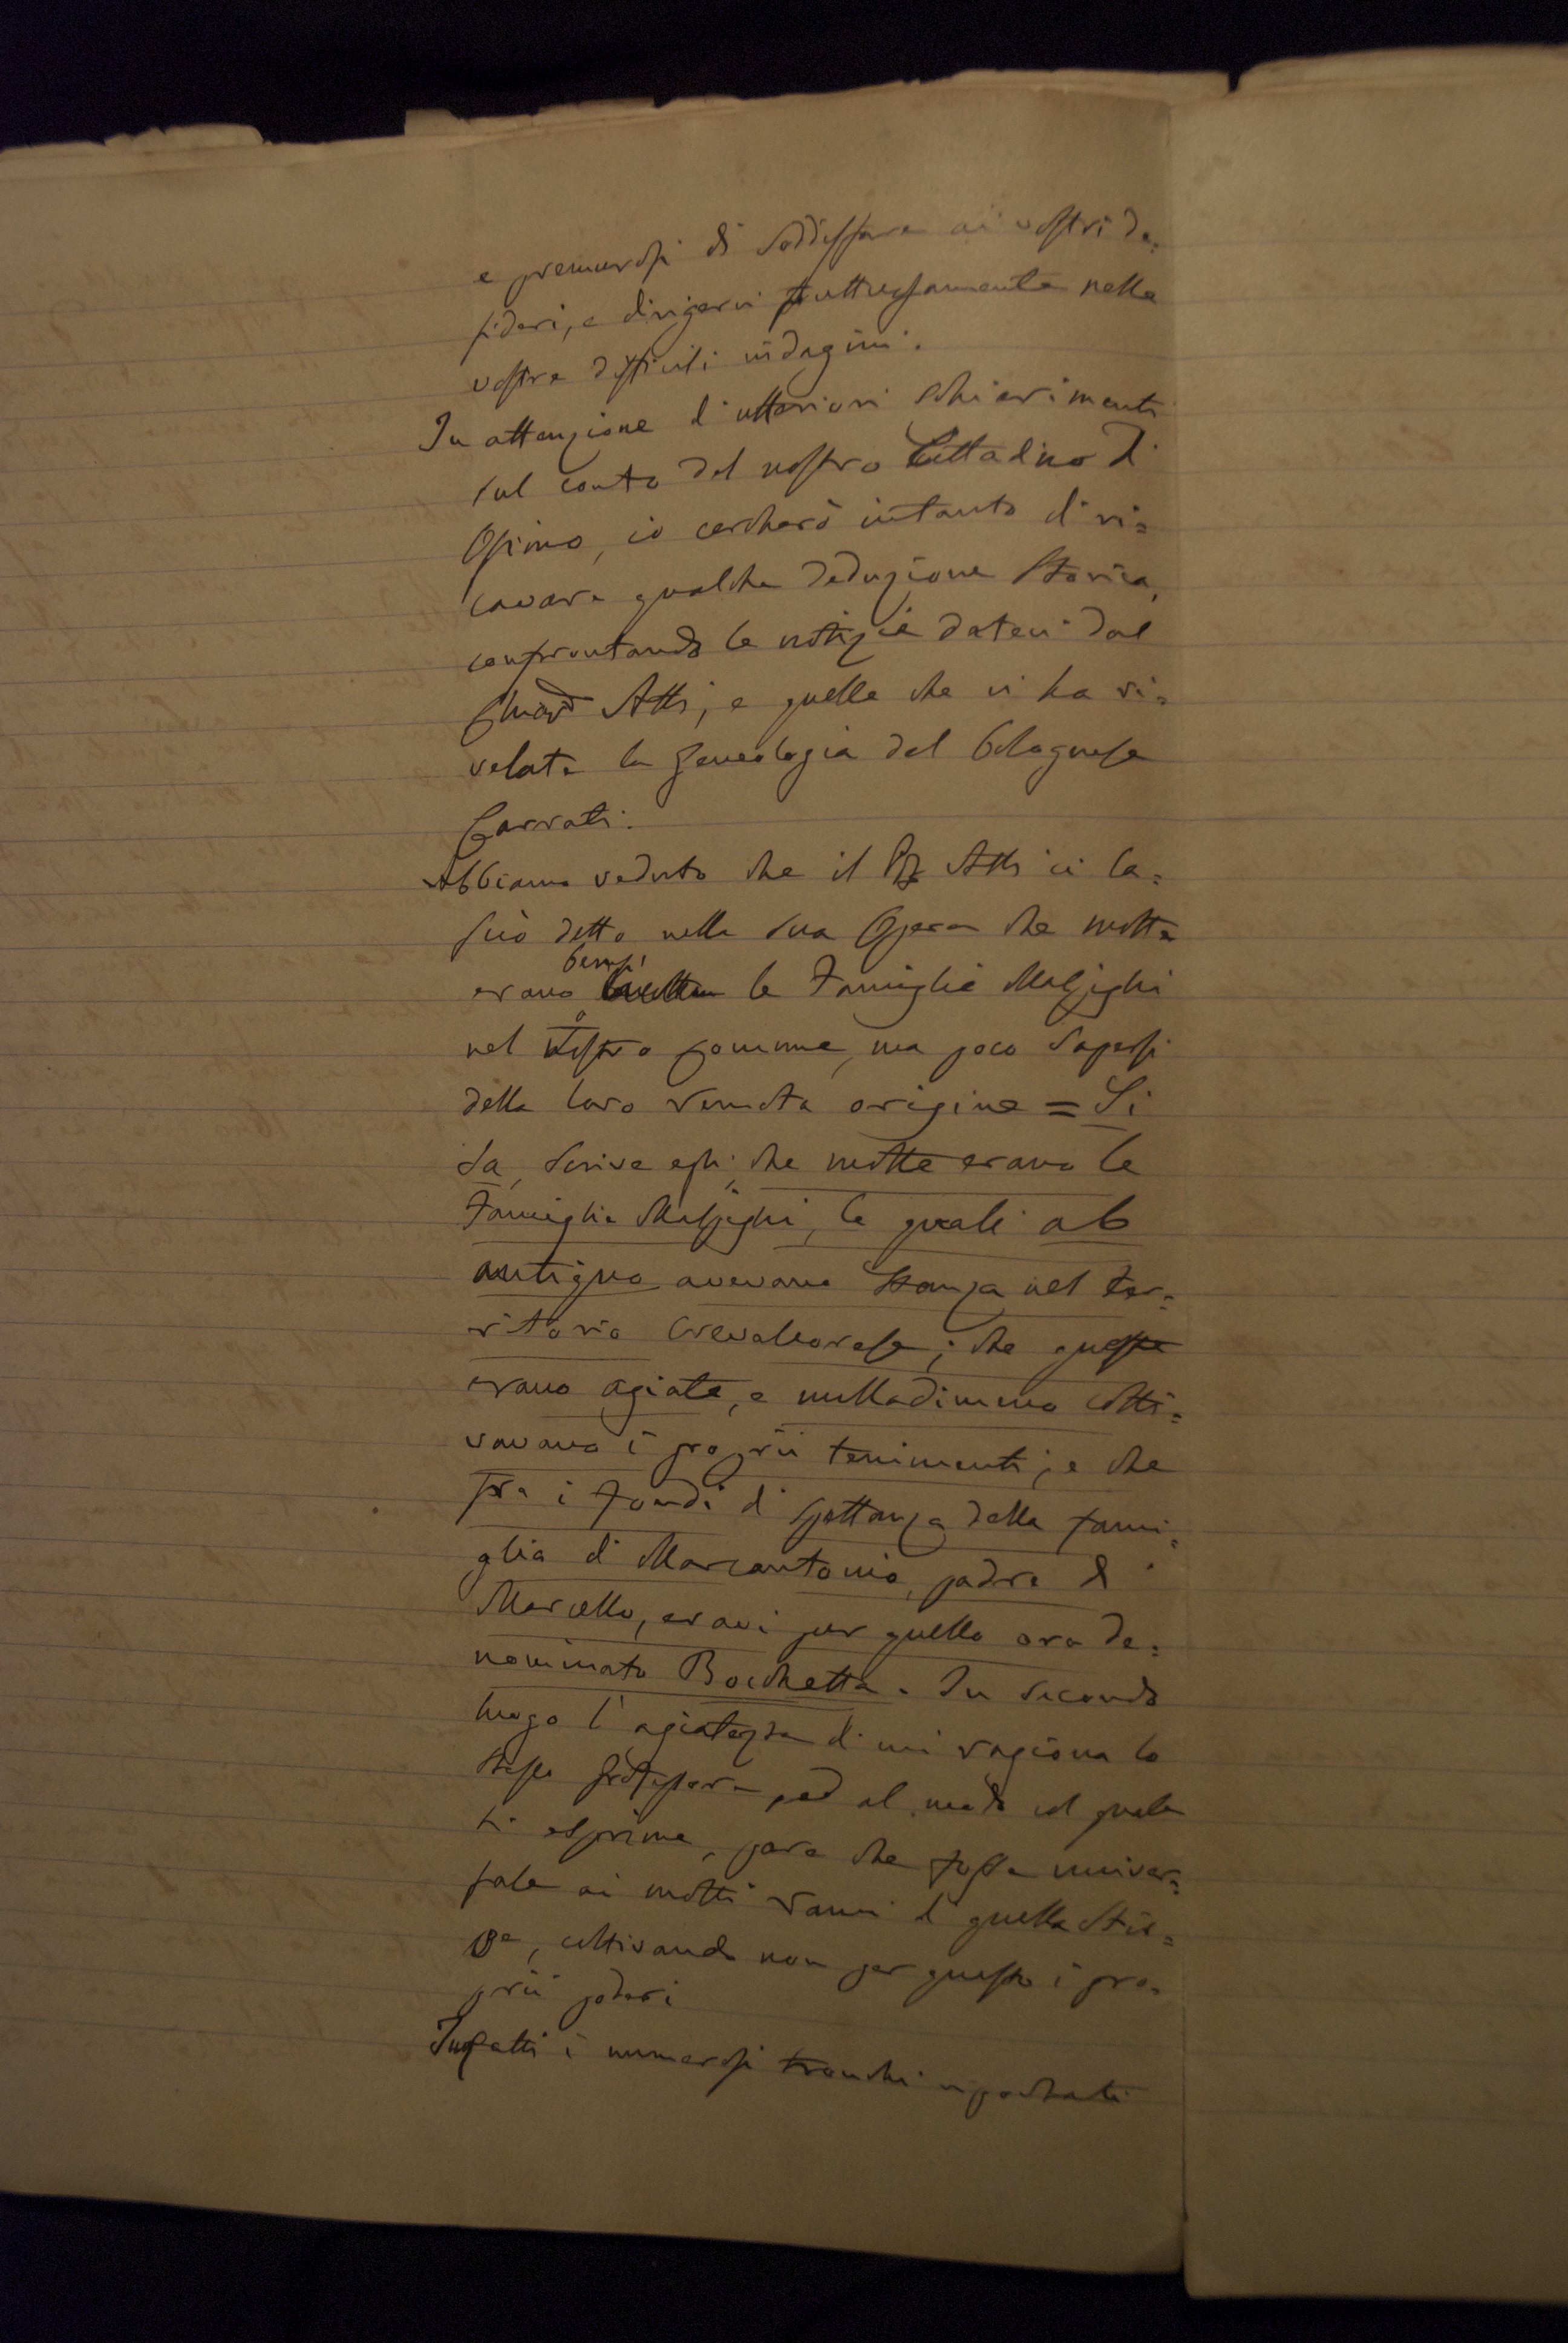 e premurosi di soddisfare ai vostri de=
sideri, e dirigervi fruttuosamente nelle
vostre difficili indagini.
In attenzione d'ulteriori schiarimenti
sul conto del nostro Cittadino di
Osimo, io cercherò intanto di ri=
cavare qualche deduzione storica,
confrontando le notizie dateci dal
Atti, e quelle che ci ha ri=
velate la genealogia del bolognese
Carrati.
Abbiamo veduto che il Atti ci la=
sciò detto nella sua Opera che molte
erano bensì le Famiglie Malpighi
nel Vostro Comune, ma poco sapersi
della loro remota origine = Si
sa, scrive egli, che molte erano le
Famiglie Malpighi, le quali ab
antiquo avevano stanza nel ter=
ritorio Crevalcorese; che queste
erano agiate, e nulladimeno colti=
vavano i proprii tenimenti; e che
fra i fondi di spettanza della fami=
glia di Marcantonio, padre di
Marcello, eravi pur quello ora de=
nominato Bocchetta. In secondo
luogo l'agiatezza di cui ragiona lo
stesso Professore, ed al modo col quale
si esprime, pare che fosse univer=
sale ai molti rami di quella Stir=
pe, coltivando non per questo i pro=
prii poderi
Infatti i numerosi tronchi